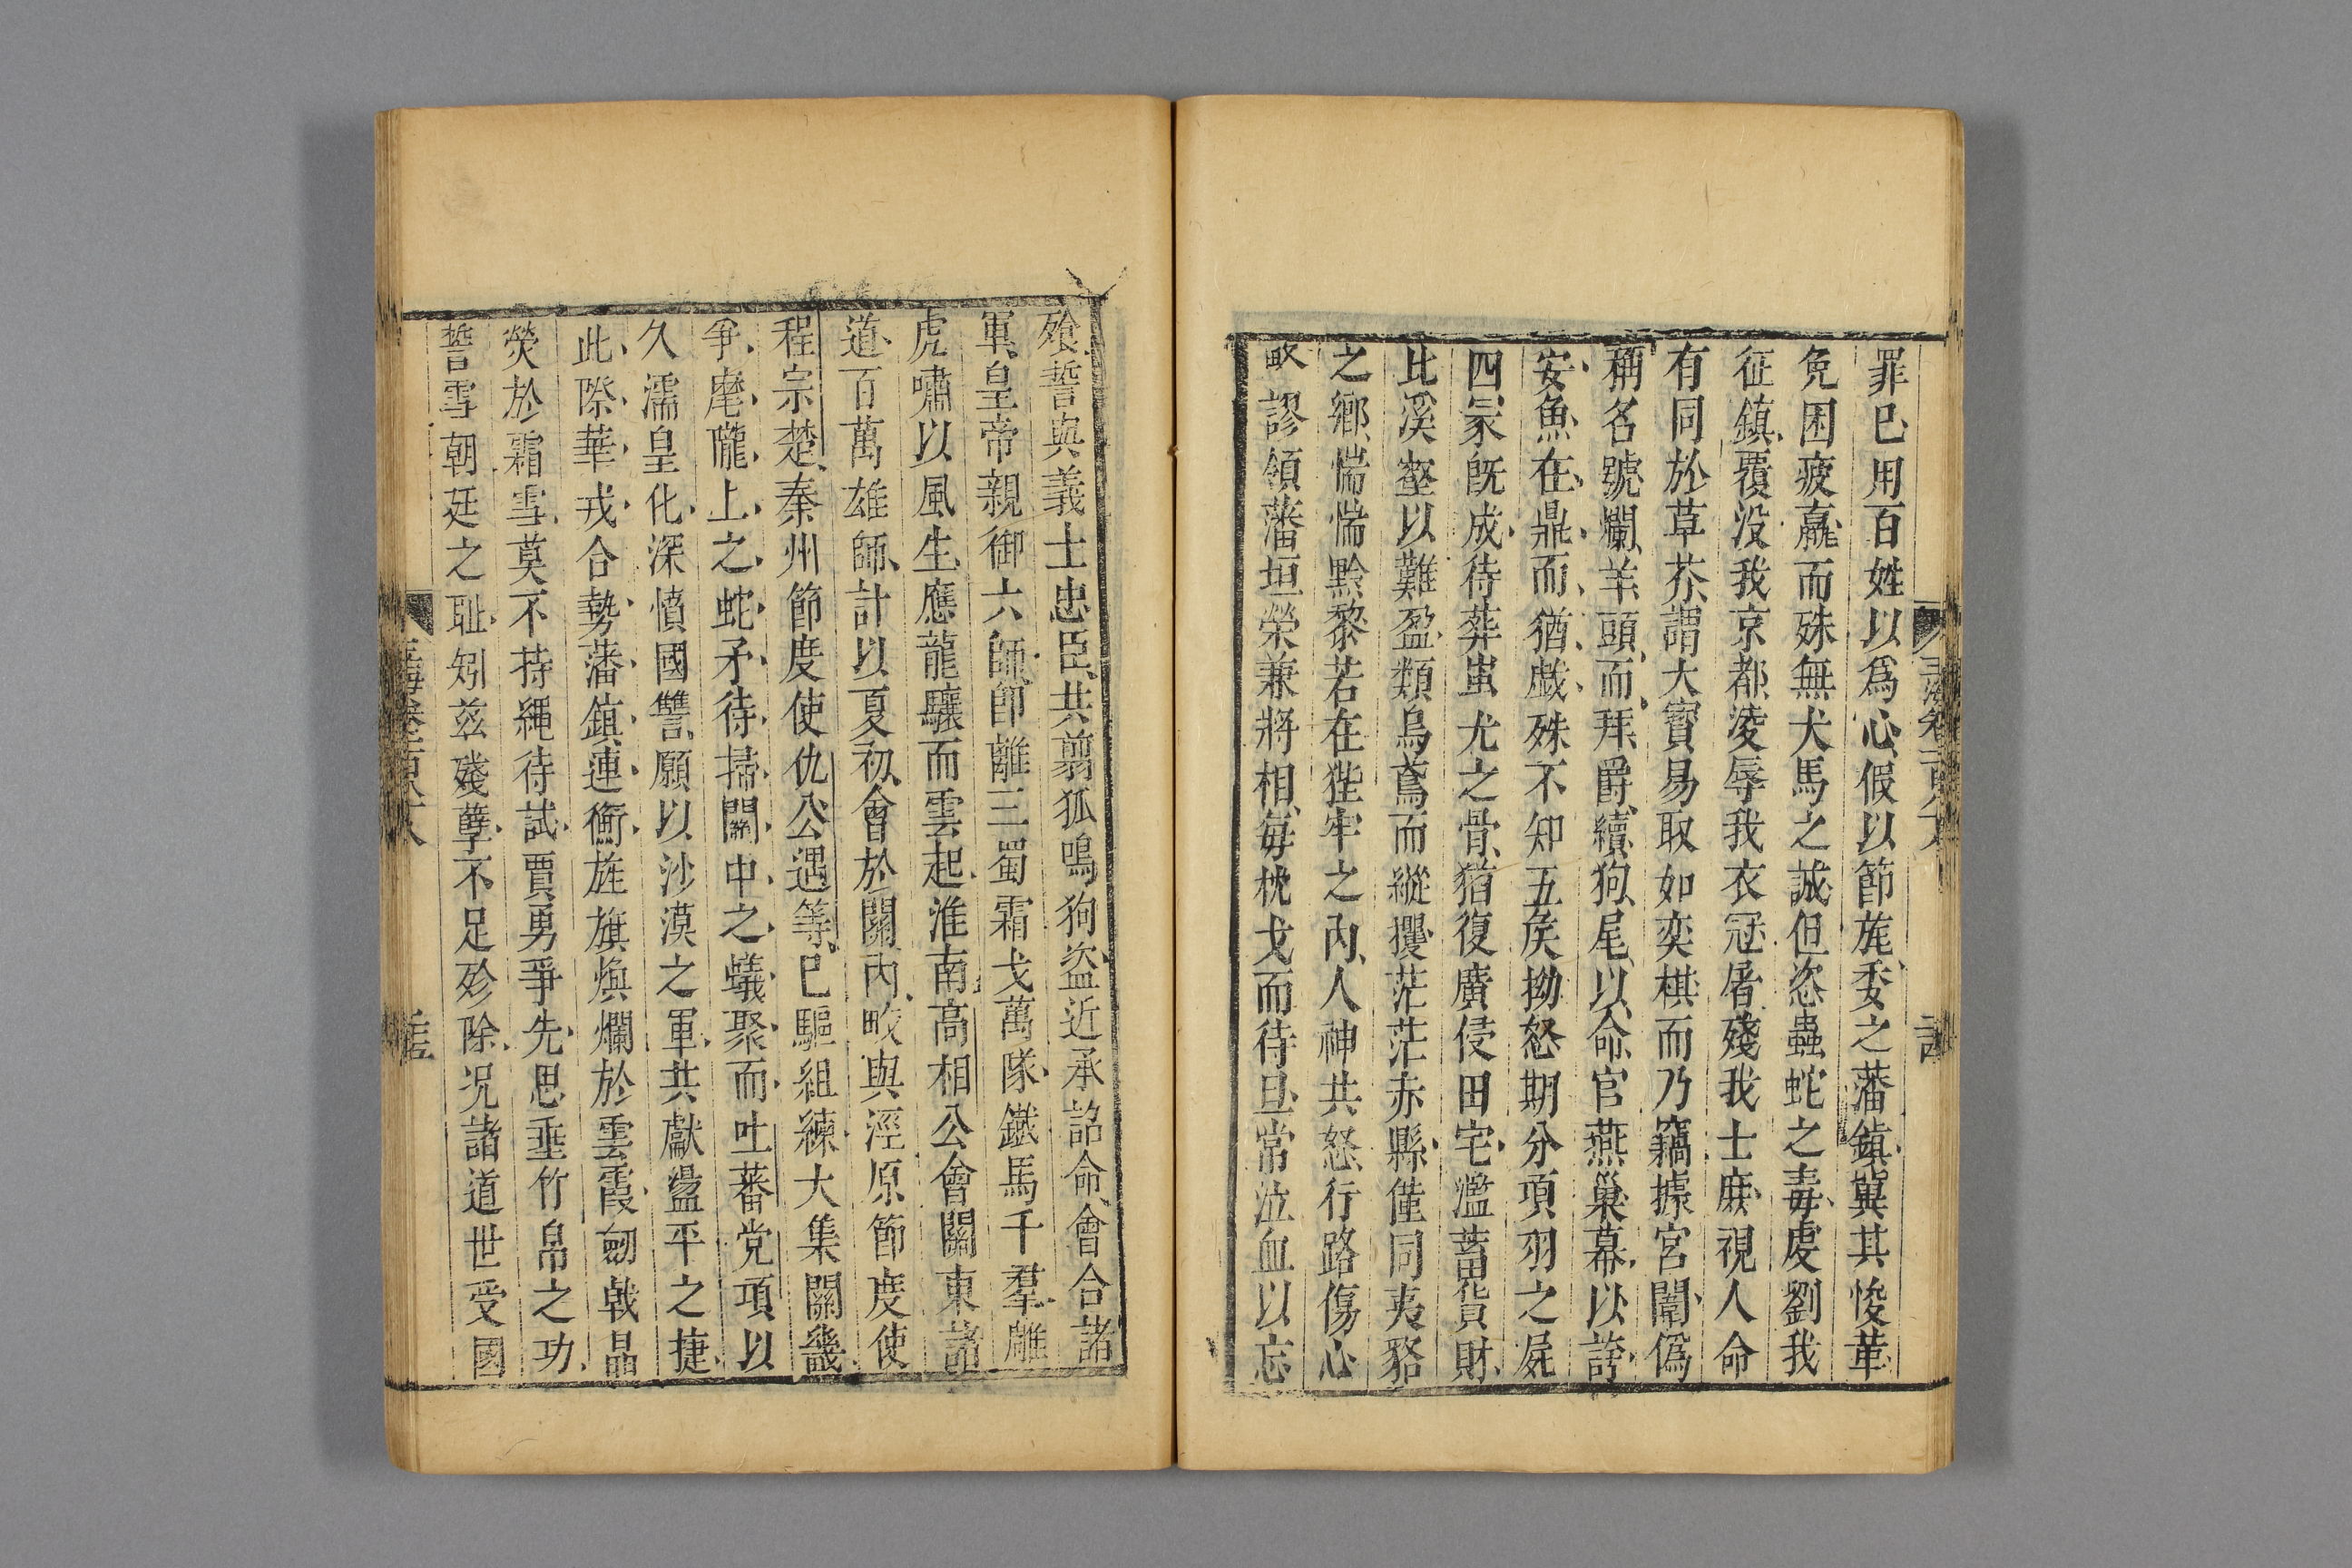 罪巳用百姓以爲心假以節旄委之藩鎮冀其悛革
免困疲羸而殊無犬馬之誠但恣蟲蛇之毒虔劉我
征鎮覆沒我京都凌辱我衣冠屠殘我士庶視人命
有同於草芥謂大寳易取如奕棋而乃竊據宮闈僞
稱名號爛羊頭而拜爵續狗尾以命官燕巢幕以誇
安魚在鼎而猶戯殊不知五矦拗怒期分項羽之屍
四冢旣成待葬蚩尤之骨猶復廣侵田宅濫蓄貨財
比溪壑以難盈類烏鳶而縱攫茫茫赤縣僅同夷貉
之鄉惴惴黔黎若在狴牢之內人神共怒行路傷心
畋謬領藩垣榮兼將相每枕戈而待旦常泣血以忘
飱誓與義士忠臣共翦狐鳴狗盗近承詔命會合諸
軍皇帝親御六師卽離三蜀霜戈萬隊鐵馬千羣雕
虎嘯以風生應龍驤而雲起淮南高相公會關東諸
道百萬雄師計以夏初會於關內畋與涇原節度使
程宗楚秦州節度使仇公遇等巳驅組練大集關畿
爭麾隴上之蛇矛待掃關中之蟻聚而吐蕃党項以
久濡皇化深憤國讐願以沙漠之軍共獻盪平之捷
此際華戎合勢藩鎮連衡旌旗煥爛於雲霞劒戟晶
熒於霜雪莫不持繩待試賈勇爭先思垂竹帛之功
誓雪朝廷之耻矧茲殘孽不足殄除况諸道世受國